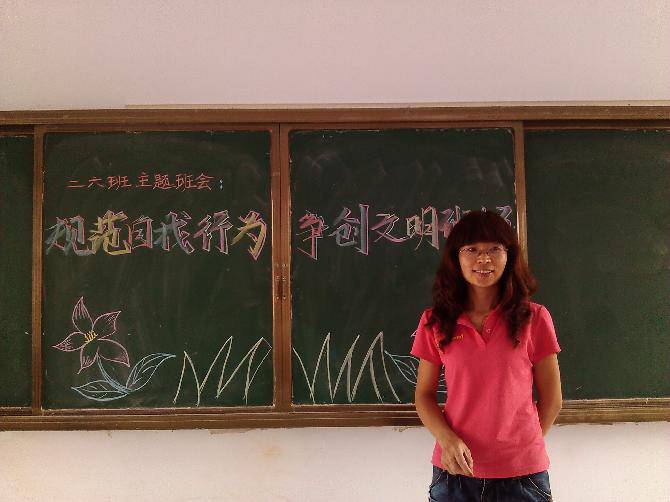 二六班主题班会：
规范自我行为 争创文明班